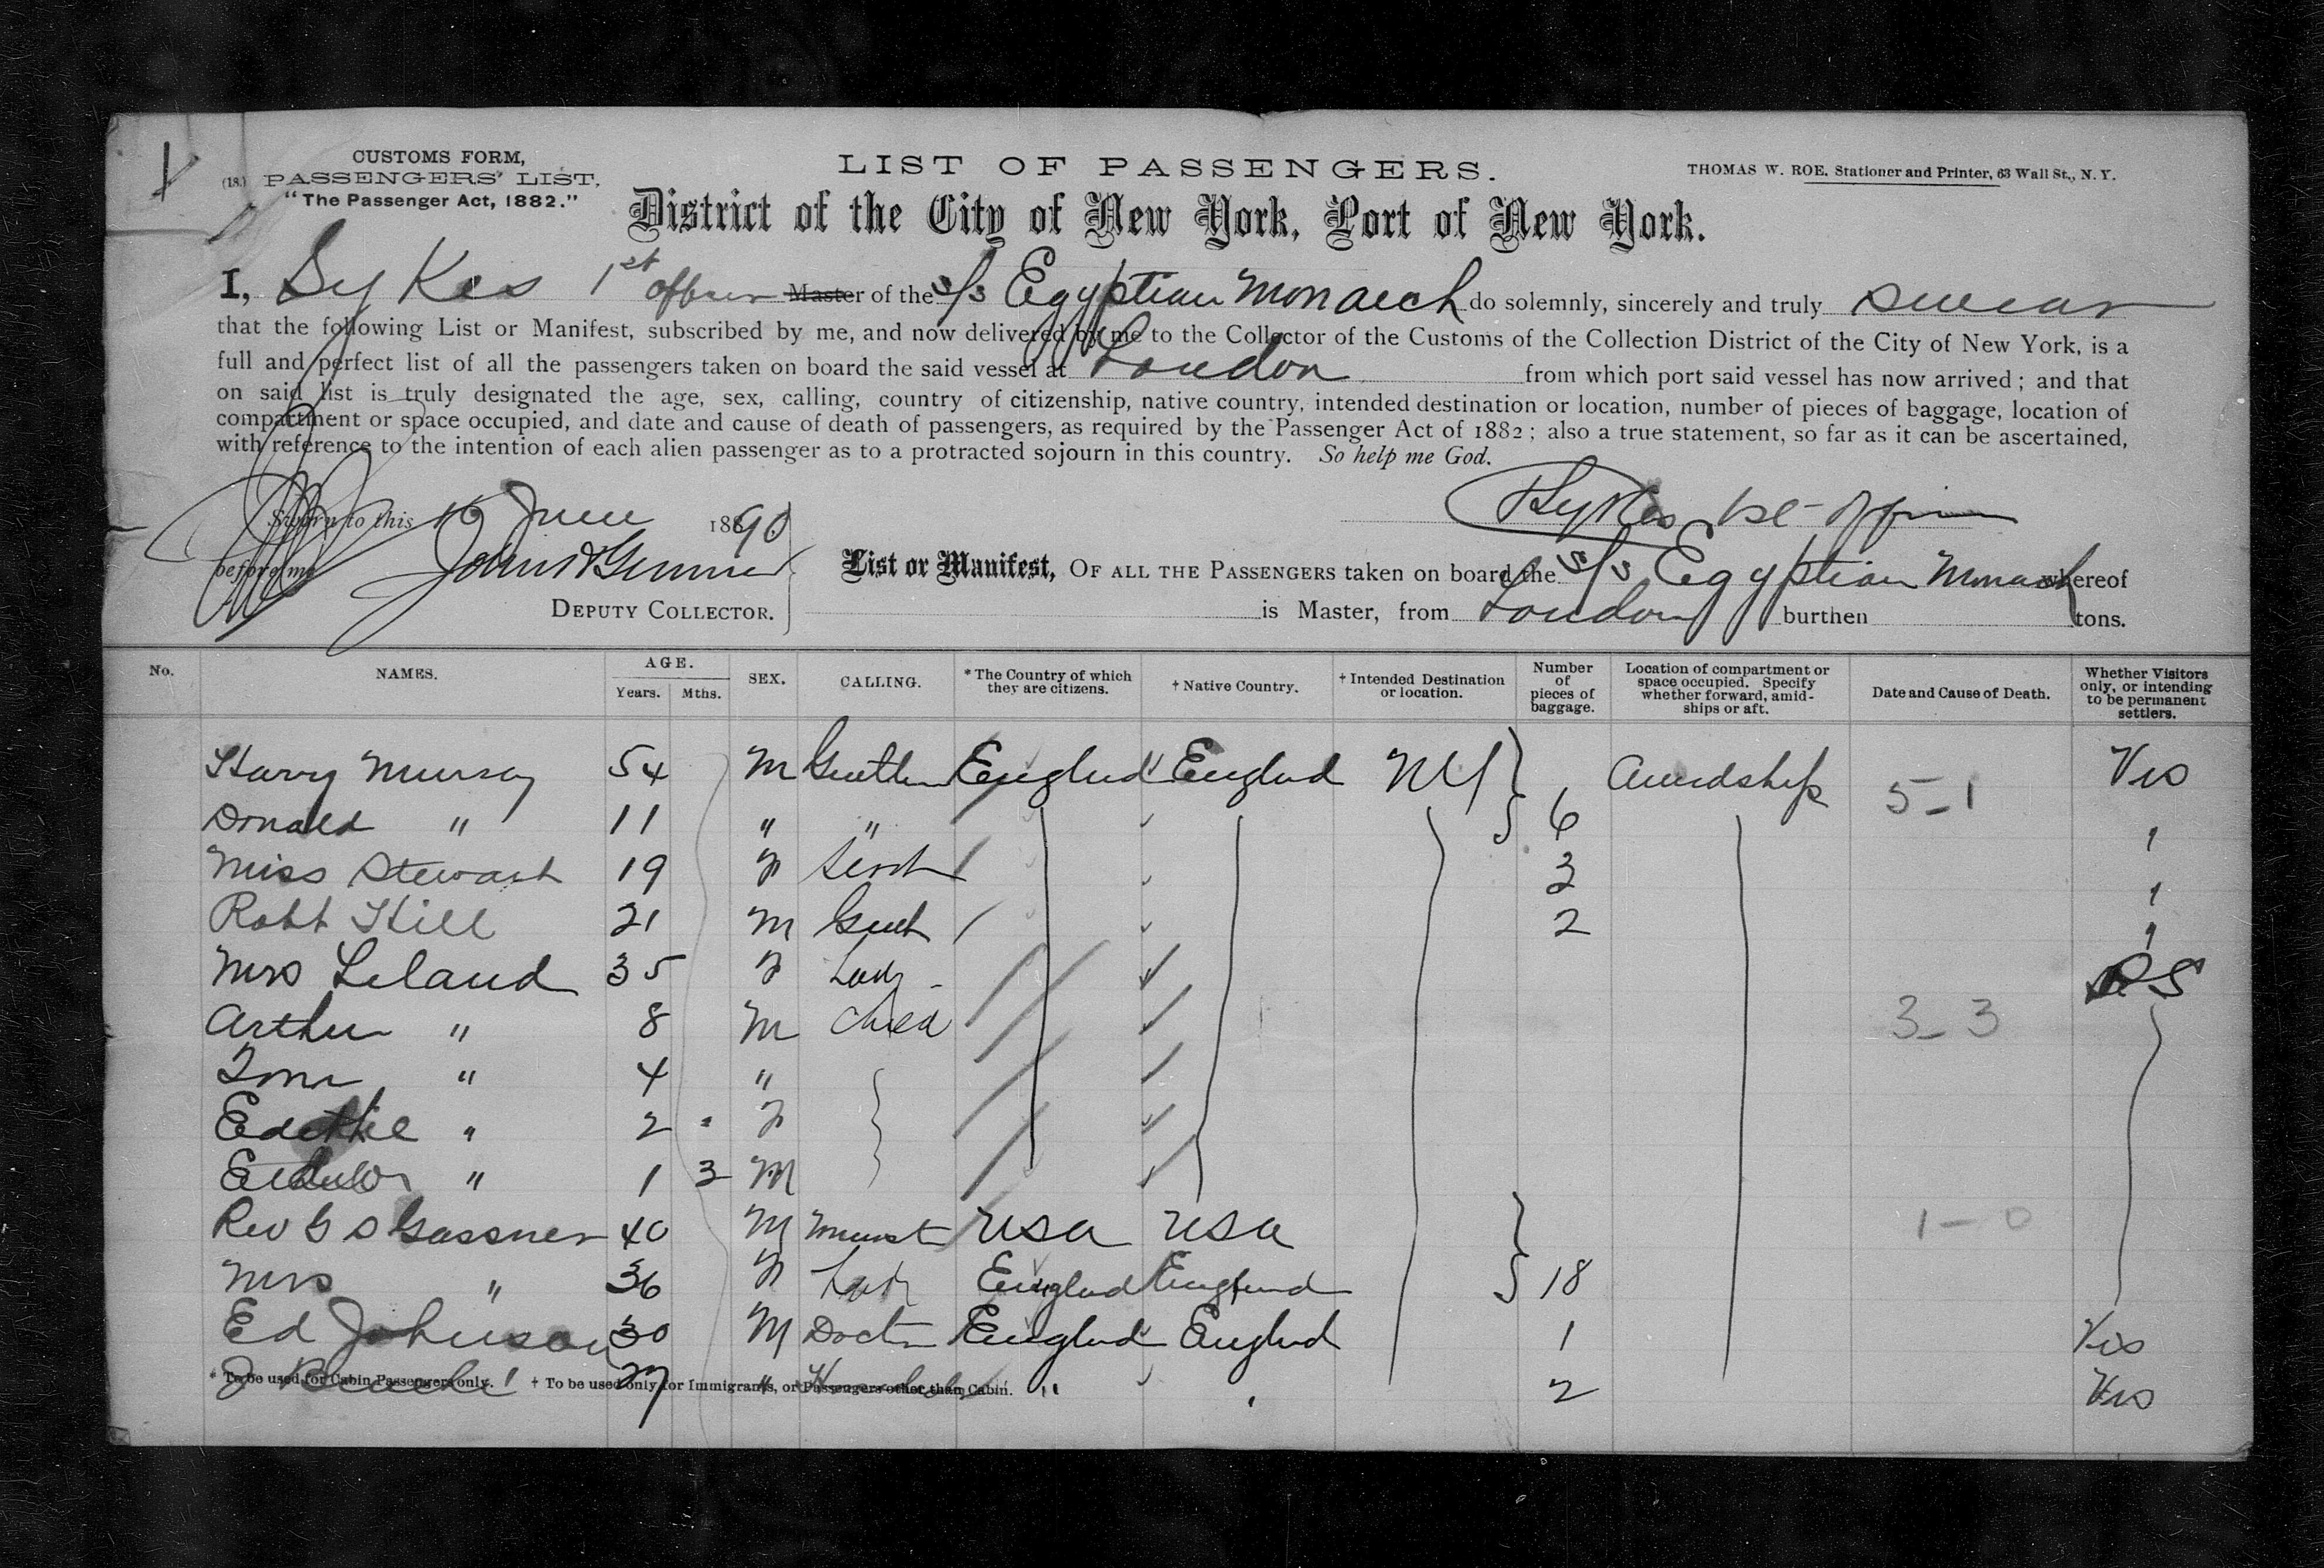 CUSTOMS FORM,
(18.) PASSENGERS' LIST,
"The Passenger Act, 1882."
LIST OF PASSENGERS.
THOMAS W. ROE, Stationer and Printer, 63 Wall St., N. Y.
District of the City of New York, Port of New York.
I, Sykes 1st officer Master of the s/s Egyptian Monarch do solemnly, sincerely and truly swear
that the following List or Manifest, subscribed by me, and now delivered by me to the Collector of the Customs of the Collection District of the City of New York, is a
full and perfect list of all the passengers taken on board the said vessel at London from which port said vessel has now arrived; and that
on said list is truly designated the age, sex, calling, country of citizenship, native country, intended destination or location, number of pieces of baggage, location of
compartment or space occupied, and date and cause of death of passengers, as required by the Passenger Act of 1882; also a true statement, so far as it can be ascertained,
with reference to the intention of each alien passenger as to a protracted sojourn in this country. So help me God.
Sykes 1st Officer
Sworn to this 16 June 1890
before me
DEPUTY COLLECTOR.
List or Manifest, OF ALL THE PASSENGERS taken on board the s/s Egyptian Monarch whereof
is Master, from London burthen tons.
No. NAMES. AGE. Years. Mths. SEX. CALLING. * The Country of which they are citizens. † Native Country. † Intended Destination or location. Number of pieces of baggage. Location of compartment or space occupied. Specify whether forward, amidships or aft. Date and Cause of Death. Whether Visitors only, or intending to be permanent settlers.
Harry Murray 54 M Gentlm Englnd Englnd NY Amidships Vis
5-1
Donald " 11 " " 6 "
Miss Stewart 19 F 3 "
Robt Hill 21 M Gent 2 "
Mrs Leland 35 F Lady PS
Arthur " 8 M Child 3-3
" 4 "
" 2 " F
" 1 3 M
Rev G S Gassner 40 M Minist USA USA 1-0
Mrs " 36 F Lady Englnd England 18
Ed Johnson 30 M Doctr Englnd Englnd 1 Vis
27 " " 2 Vis
* To be used for Cabin Passengers only. † To be used only for Immigrants, or Passengers other than Cabin.